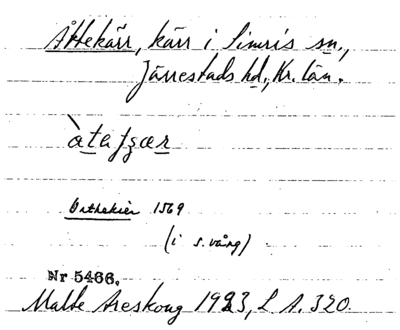 Åttekärr, kärr i Simris sn.,
Järrestads hd, Kr. län.
1569
(i s. vång)
Nr 5466.
Malte Areskoug 1923, L A. 320